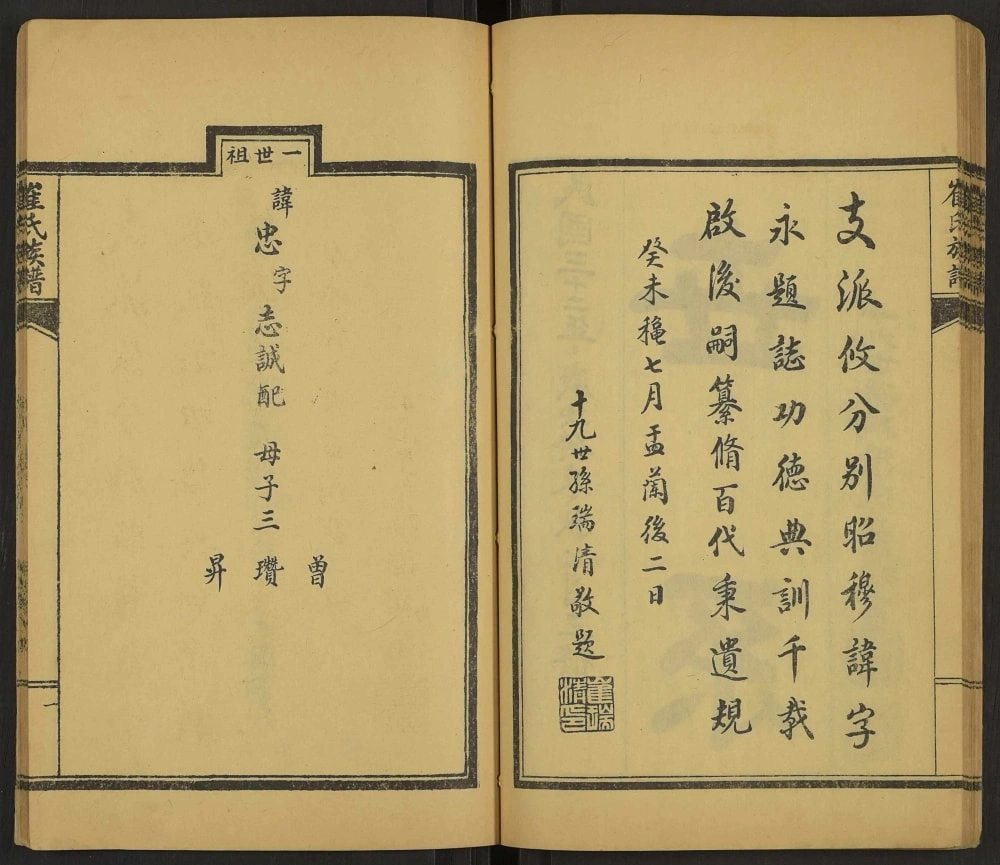 崔氏族譜
支派攸分別昭穆諱字
永題誌功德典訓千載
啟後嗣纂脩百代秉遺規
癸未穐七月盂蘭後二日
十九世孫瑞清敬題
崔瑞清印
一世祖
諱忠字志誠配 母子三
曾
瓚
昇
崔氏族譜
一